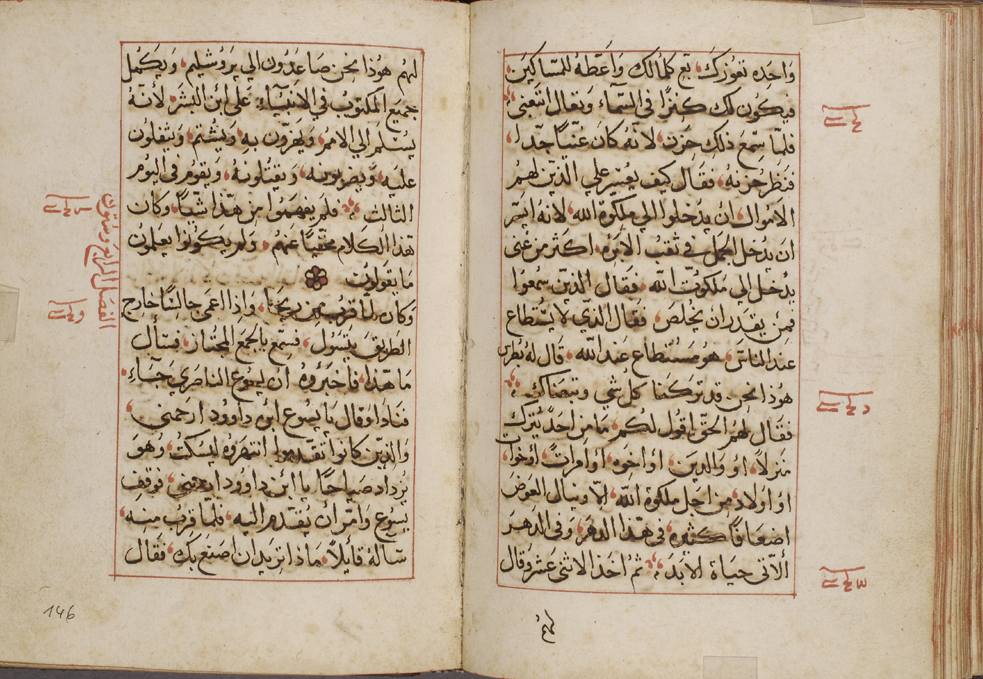 واحده تعوزك، بع كلما لك واعطه للمساكين،
فيكون لك كنزًا في السماء وتعال اتبعني
فلما سمع ذلك حزن لانه كان غنيًا جدا،
فنظر حزنه، فقال كيف يعسر علي الذين لهم
الاموال ان يدخلوا الي ملكوة الله، لانه ايسر
ان يدخل الجمل في ثقب الابره، اكثر من غنى
يدخل الى ملكوت الله، فقال الذين سمعوا
فمن يقدر ان يخلص، فقال الذي لا يستطاع
عند الناس، هو مستطاع عند الله، قال له بطرس
هوذا نحن قد تركنا كل شي وتبعناك
فقال لهم الحق اقول لكم، ما من احد يترك
منزلاً، او والدين، او اخوه، او امراة، او اخوات
او اولاد، من اجل ملكوة الله، الا وينال العوض
اضعافًا كثيره، في هذا الدهر، وفي الدهر
الآتى حياة الابد، ثم اخذ الاثني عشر وقال
لهم
لهم هوذا نحن صاعدون الي يروشليم، ويكمل
جميع المكتوب في الانبياء، على ابن البشر، لانه
يسلم الي الامم، ويهزون به، ويشتم، ويتفلون
عليه، ويضربونه، ويقتلونه، ويقوم فى اليوم
الثالث، فلم يفهموا من هذا شيا، وكان
هذا الكلام مخفيًا عنهم، ولم يكونوا يعلمون
ما يقولون
وكان لما قرب من ريحا، واذا اعمى جالسًا خارج
الطريق يتسول، فسمع باجمع المجتاز، فسأل
ما هذا، فاخبروه ان يسوع الناصري جاء،
فنادا وقال يا يسوع ابن داوود ارحمني،
والذين كانوا تقدموا انتهروه ليسكت، وهو
يزداد صياحًا يا ابن داوود ارحمني، فوقف
يسوع وامر ان يقدم اليه، فلما قرب منه،
ساله قايلاً، ماذا تريد ان اصنع بك، فقال
الفصل الرابع وستون
146